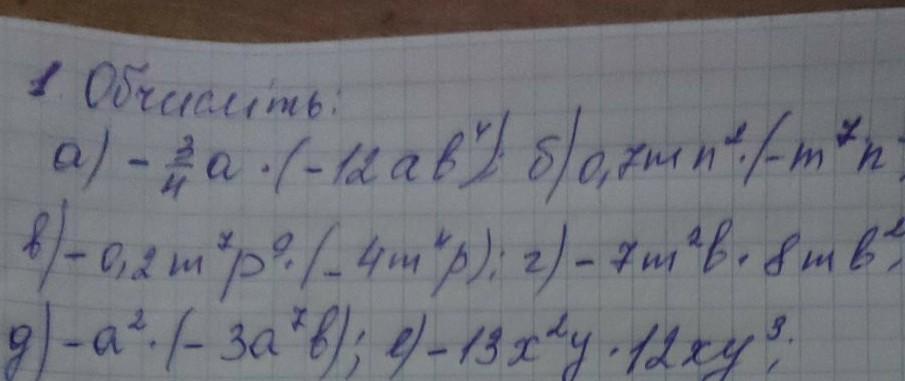 1 Обчисліть:
а) - 3/4 a · (-12ab⁴); б) 0,7mn² · (-m⁷n
в) - 0,2m⁷p⁹ · (-4m⁴p); г) - 7m²b · 8mb²;
д) -a² · (- 3a⁷b); е) - 13x²y · 12xy³;